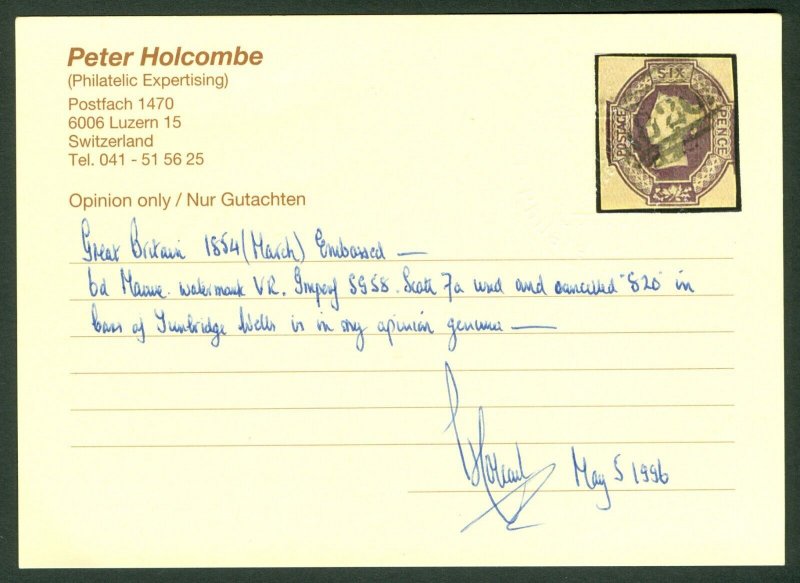 Peter Holcombe
(Philatelic Expertising)
Postfach 1470
6006 Luzern 15
Switzerland
Tel. 041 - 51 56 25
Opinion only / Nur Gutachten
SIX
POSTAGE
PENCE
Great Britain 1854 (March) Embossed —
6d Mauve. watermark VR. Imperf SG58. Scott 7a used and cancelled "820" in
bars of Tunbridge Wells is in my opinion genuine —
May 5 1996